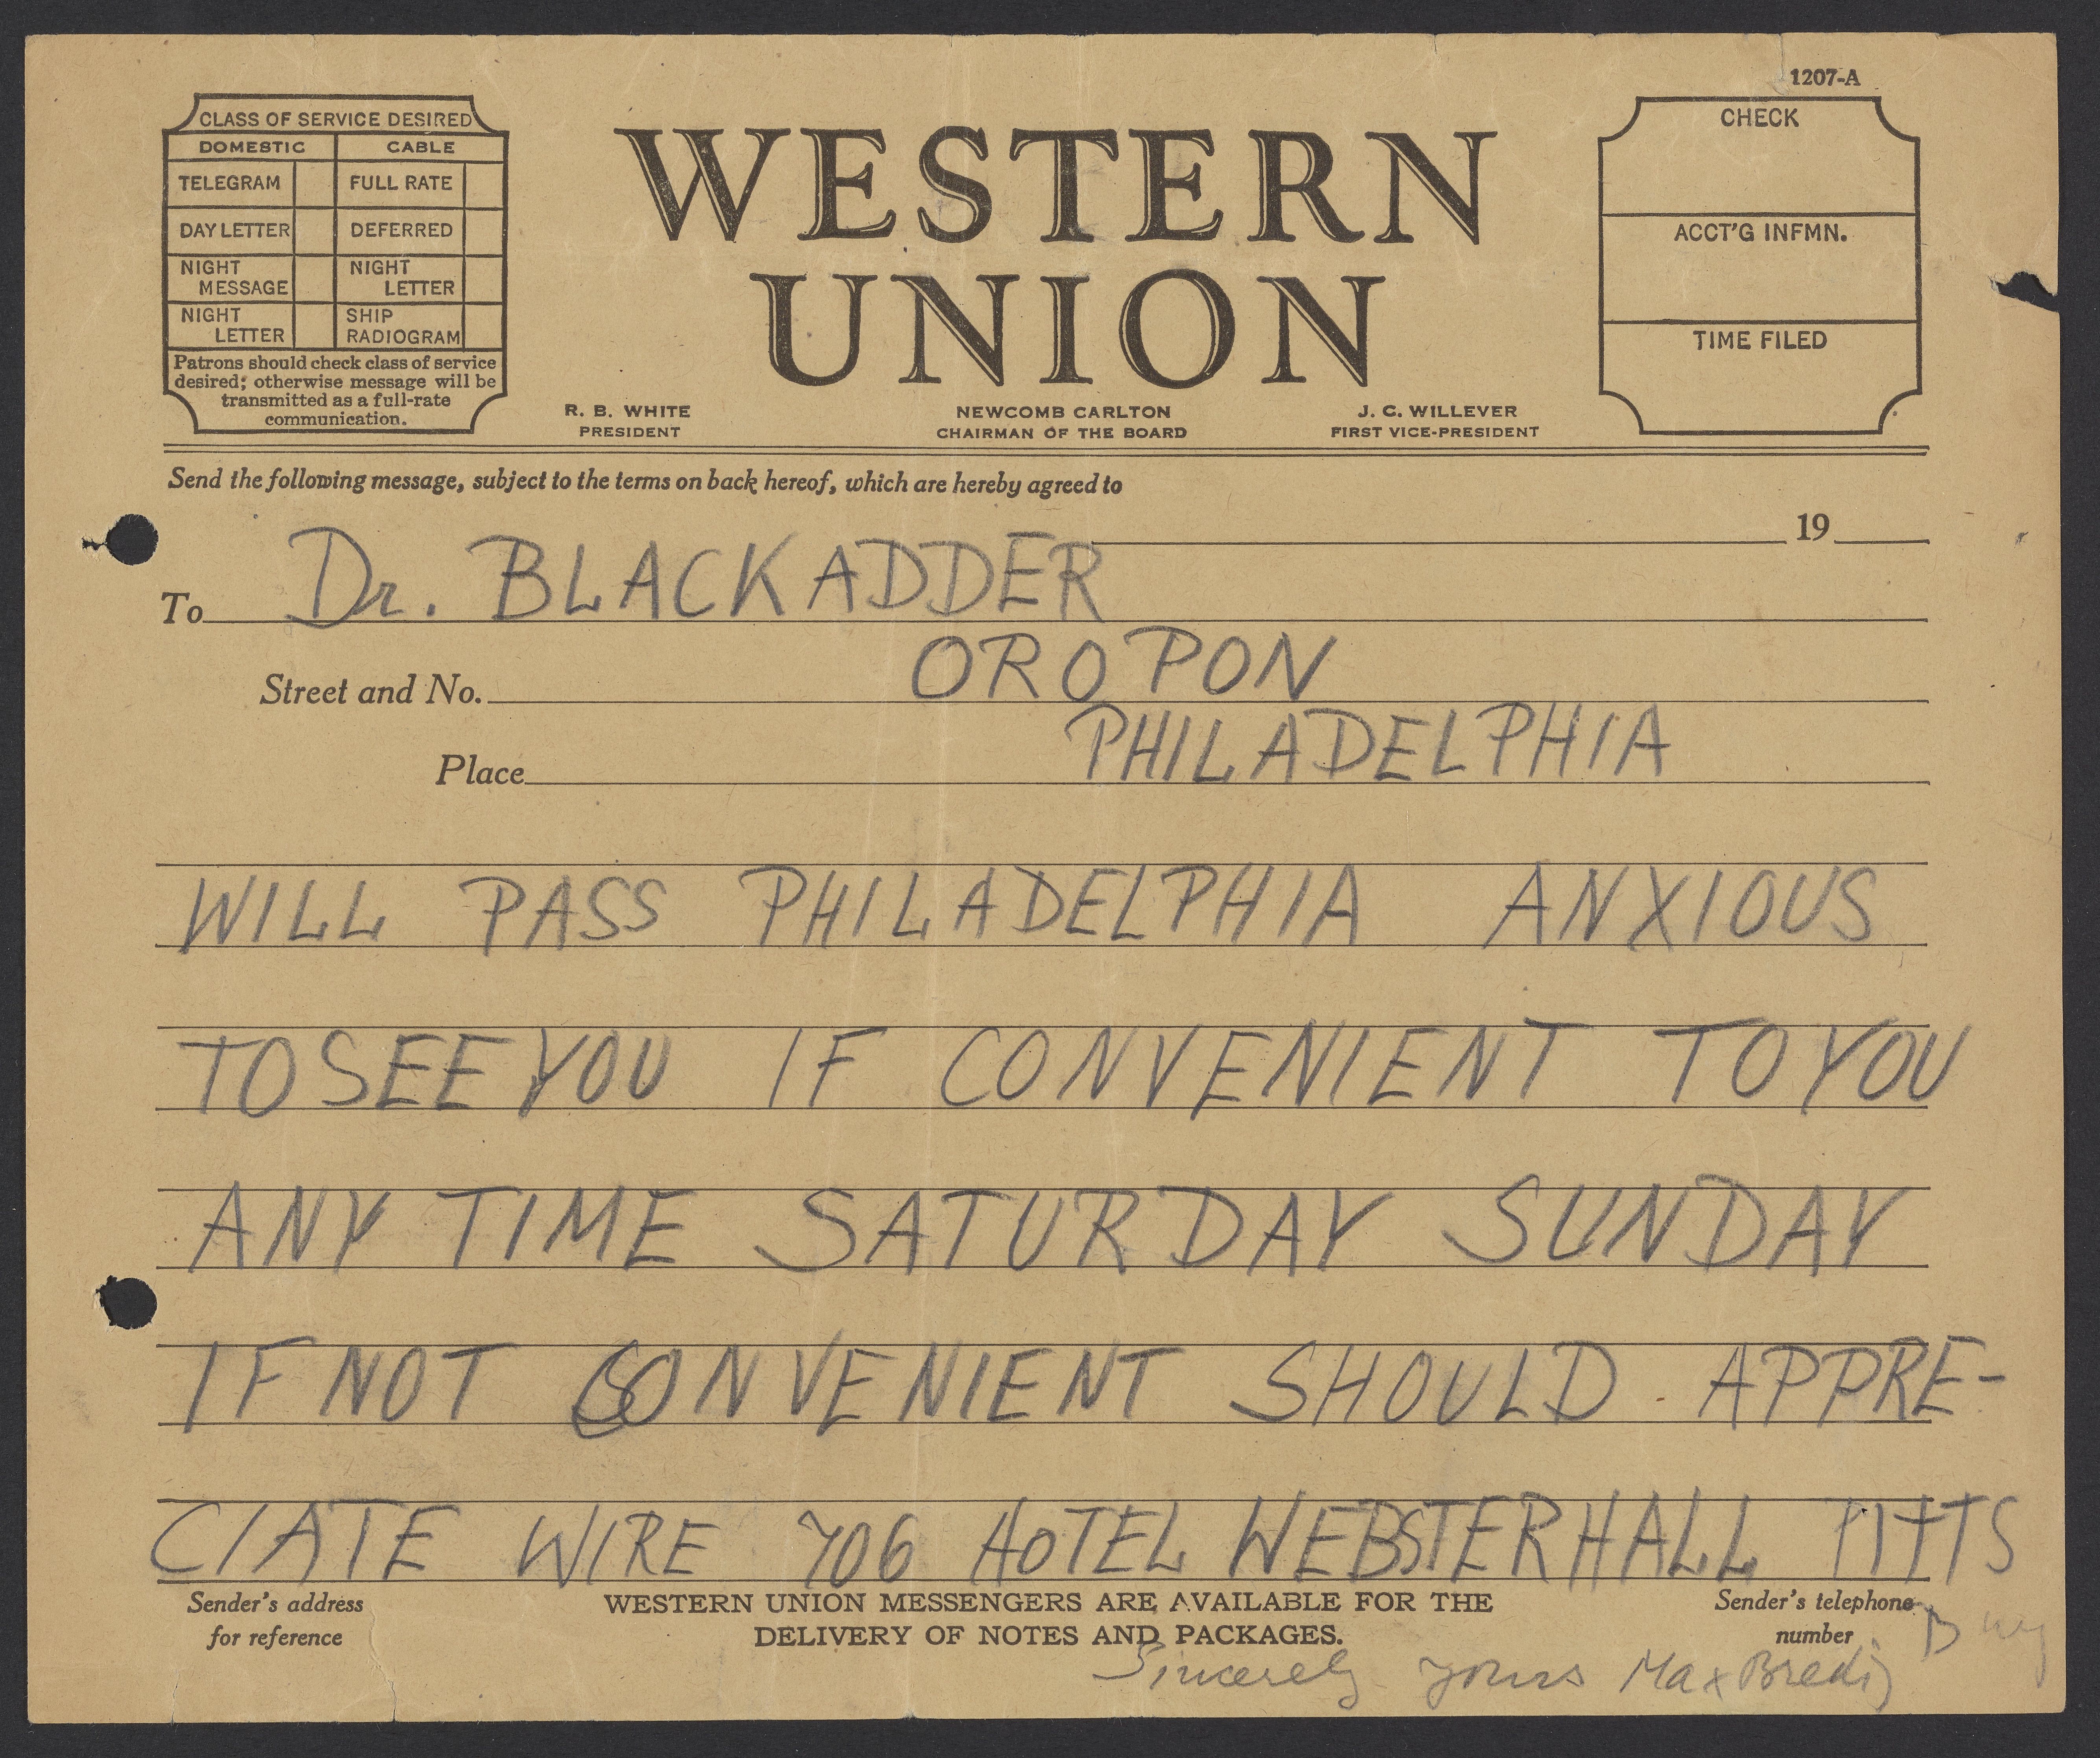 1207-A
CLASS OF SERVICE DESIRED
DOMESTIC CABLE
TELEGRAM FULL RATE
DAY LETTER DEFERRED
NIGHT MESSAGE NIGHT LETTER
NIGHT LETTER SHIP RADIOGRAM
Patrons should check class of service
desired; otherwise message will be
transmitted as a full-rate
communication.
WESTERN
UNION
R. B. WHITE
PRESIDENT
NEWCOMB CARLTON
CHAIRMAN OF THE BOARD
J. C. WILLEVER
FIRST VICE-PRESIDENT
CHECK
ACCT'G INFMN.
TIME FILED
Send the following message, subject to the terms on back hereof, which are hereby agreed to
19
To Dr. BLACKADDER
Street and No. OROPON
Place PHILADELPHIA
WILL PASS PHILADELPHIA ANXIOUS
TO SEE YOU IF CONVENIENT TO YOU
ANY TIME SATURDAY SUNDAY
IF NOT CONVENIENT SHOULD APPRE-
CIATE WIRE 706 HOTEL WEBSTERHALL PITTS
Sender's address
for reference
WESTERN UNION MESSENGERS ARE AVAILABLE FOR THE
DELIVERY OF NOTES AND PACKAGES.
Sender's telephone
number
Sincerely yours Max Bredig